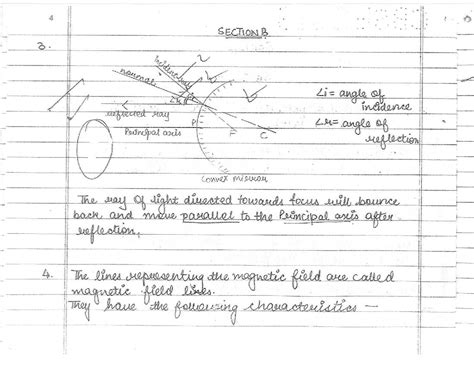 4
SECTION B
3.
Incident ray
normal
∠i
∠r
reflected ray
Principal axis
P
F
C
Convex mirror
∠i = angle of
incidence
∠r = angle of
reflection
The ray of light directed towards focus will bounce
back and move parallel to the Principal axis after
reflection.
4.
The lines representing the magnetic field are called
magnetic field lines.
They have the following characteristics —